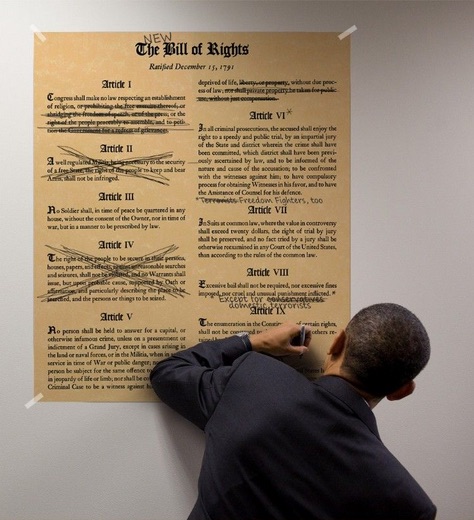 NEW
The Bill of Rights
Ratified December 15, 1791
Article I
Congress shall make no law respecting an establishment
of religion, or prohibiting the free exercise thereof, or
abridging the freedom of speech, or of the press, or the
right of the people peaceably to assemble, and to peti-
tion the Government for a redress of grievances.
Article II
A well regulated Militia, being necessary to the security
of a free State, the right of the people to keep and bear
Arms, shall not be infringed.
Article III
No Soldier shall, in time of peace be quartered in any
house, without the consent of the Owner, nor in time of
war, but in a manner to be prescribed by law.
Article IV
The right of the people to be secure in their persons,
houses, papers, and effects, against unreasonable searches
and seizures, shall not be violated, and no Warrants shall
issue, but upon probable cause, supported by Oath or
affirmation, and particularly describing the place to be
searched, and the persons or things to be seized.
Article V
No person shall be held to answer for a capital, or
otherwise infamous crime, unless on a presentment
or indictment of a Grand Jury, except in cases arising in
the land or naval forces, or in the Militia, when in
service in time of War or public danger;
person be subject for the same offence
in jeopardy of life or limb; nor shall be
Criminal Case to be a witness against
deprived of life, liberty, or property, without due proc-
ess of law; nor shall private property be taken for public
use, without just compensation.
Article VI*
In all criminal prosecutions, the accused shall enjoy the
right to a speedy and public trial, by an impartial jury
of the State and district wherein the crime shall have
been committed, which district shall have been previ-
ously ascertained by law, and to be informed of the
nature and cause of the accusation; to be confronted
with the witnesses against him; to have compulsory
process for obtaining Witnesses in his favor, and to have
the Assistance of Counsel for his defence.
*Terrorists Freedom Fighters, too
Article VII
In Suits at common law, where the value in controversy
shall exceed twenty dollars, the right of trial by jury
shall be preserved, and no fact tried by a jury shall be
otherwise reexamined in any Court of the United States,
than according to the rules of the common law.
Article VIII
Excessive bail shall not be required, nor excessive fines
imposed, nor cruel and unusual punishment inflicted.*
Except for conservatives
domestic terrorists
Article IX
The enumeration in the Constitution of certain rights,
shall not be construed to others re-